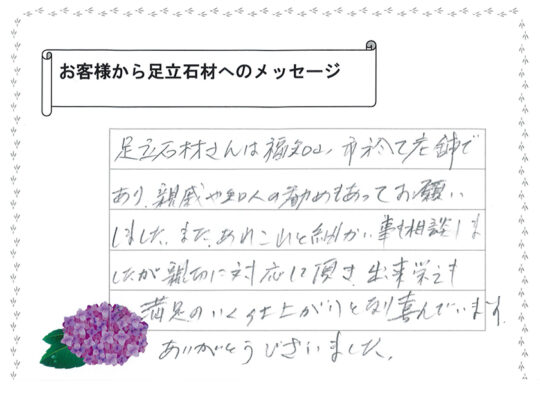 お客様から足立石材へのメッセージ
足立石材さんは福知山市於て老舗で
あり、親戚や知人の勧めもあってお願い
しました。また、あれこれと細かい事も相談しま
したが親切に対応して頂き、出来栄えも
満足のいく仕上がりとなり喜んでいます。
ありがとうございました。